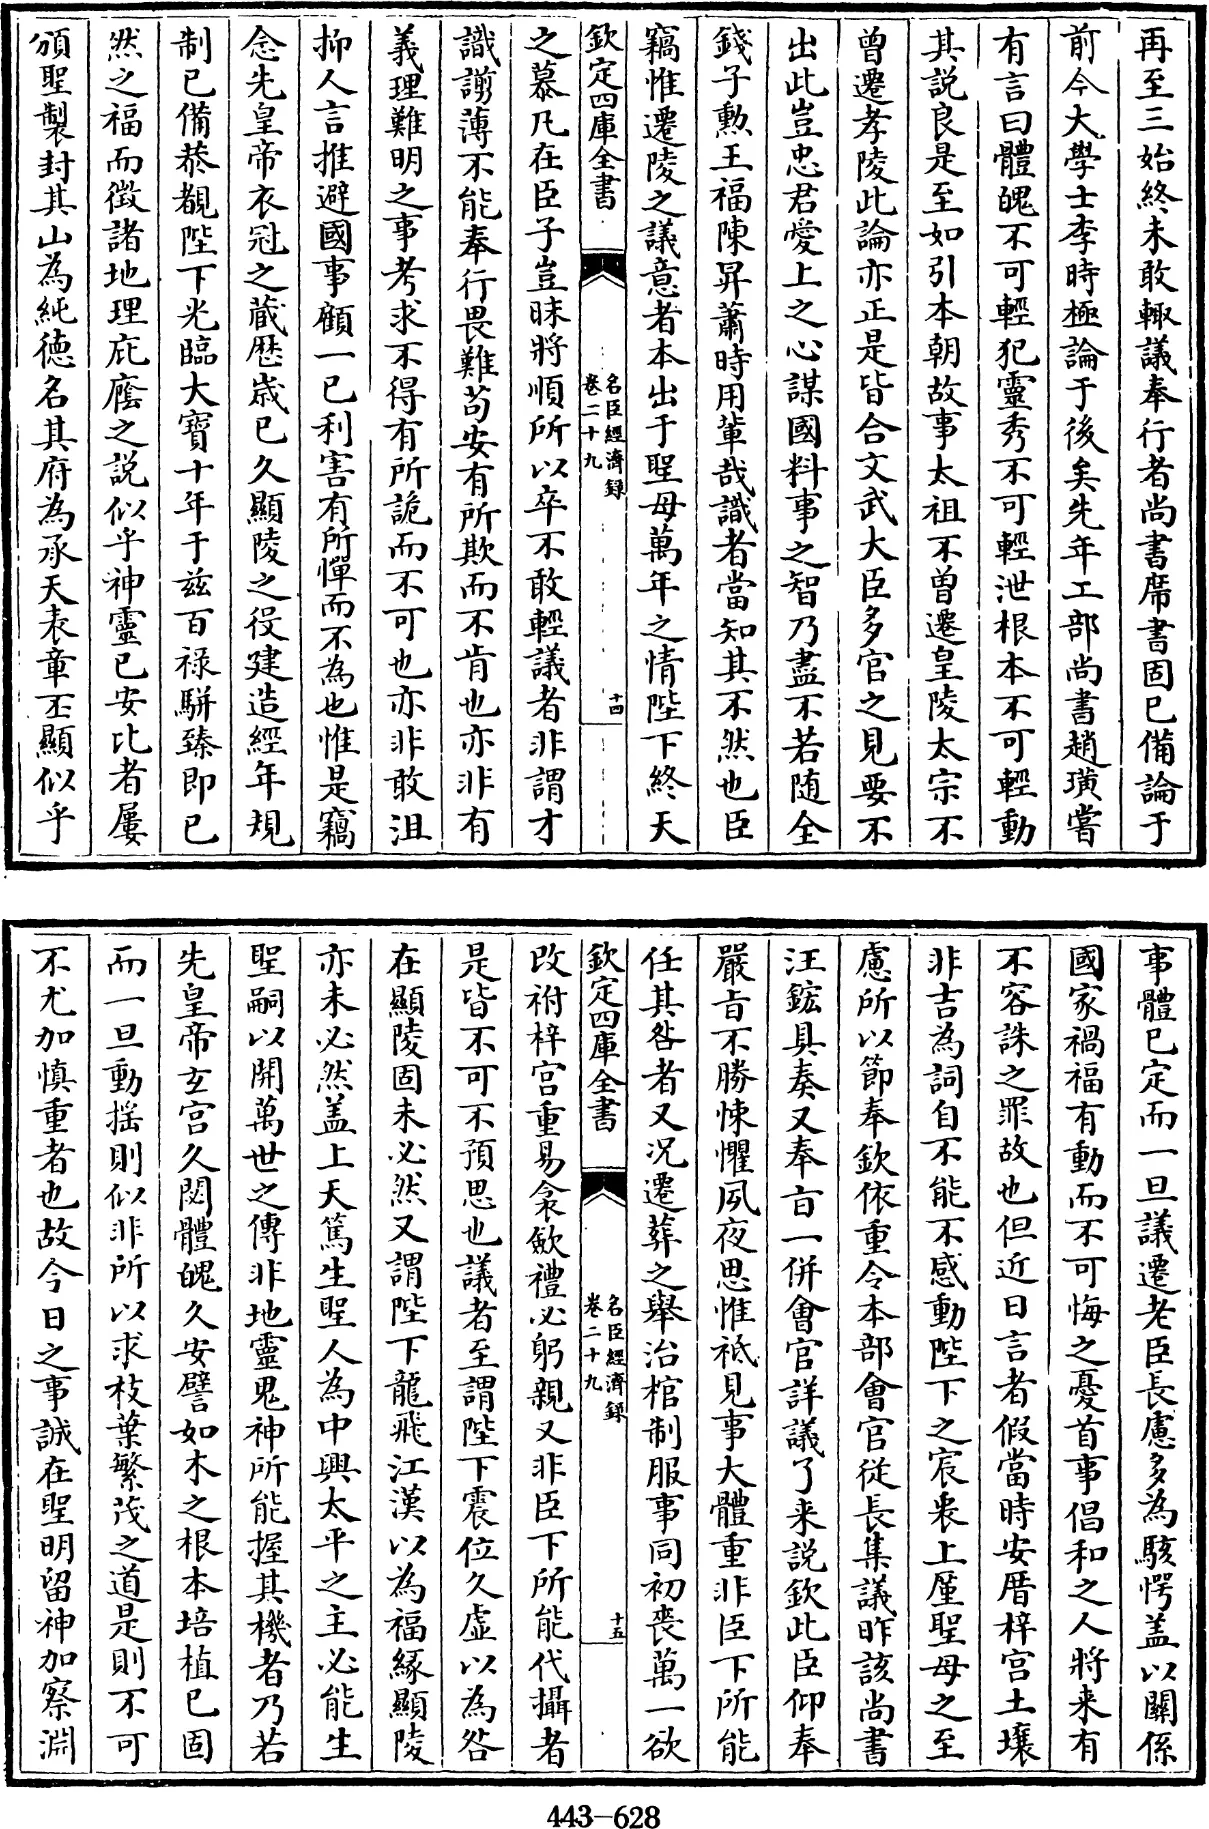 再至三始終未敢輙議奉行者尚書席書固已備論于
前今大學士李時極論于後矣先年工部尚書趙璜嘗
有言曰體魄不可輕犯靈秀不可輕泄根本不可輕動
其説良是至如引本朝故事太祖不曾遷皇陵太宗不
曾遷孝陵此論亦正是皆合文武大臣多官之見要不
出此豈忠君愛上之心謀國料事之智乃盡不若随全
錢子勲王福陳昇蕭時用軰哉識者當知其不然也臣
竊惟遷陵之議意者本出于聖母萬年之情陛下終天
欽定四庫全書
名臣經濟録
卷二十九
十四
之慕凡在臣子豈昧將順所以卒不敢輕議者非謂才
識謭薄不能奉行畏難苟安有所欺而不肯也亦非有
義理難明之事考求不得有所詭而不可也亦非敢沮
抑人言推避國事顧一已利害有所憚而不為也惟是竊
念先皇帝衣冠之蔵歴歳已久顯陵之役建造經年規
制已備恭覩陛下光臨大寶十年于兹百禄駢臻即已
然之福而徴諸地理庇廕之説似乎神靈已安比者屢
頒聖製封其山為純德名其府為承天表章丕顯似乎
事體已定而一旦議遷老臣長慮多為駭愕盖以關係
國家禍福有動而不可悔之憂首事倡和之人將来有
不容誅之罪故也但近日言者假當時安厝梓宫土壤
非吉為詞自不能不感動陛下之宸衷上厪聖母之至
慮所以節奉欽依重令本部會官從長集議昨該尚書
汪鋐具奏又奉㫖一併會官詳議了来説欽此臣仰奉
嚴㫖不勝悚懼夙夜思惟祇見事大體重非臣下所能
任其咎者又况遷葬之舉治棺制服事同初喪萬一欲
欽定四庫全書
名臣經濟録
卷二十九
十五
改祔梓宫重易衾歛禮必躬親又非臣下所能代攝者
是皆不可不預思也議者至謂陛下震位久虚以為咎
在顯陵固未必然又謂陛下龍飛江漢以為福縁顯陵
亦未必然盖上天篤生聖人為中興太平之主必能生
聖嗣以開萬世之傳非地靈鬼神所能握其機者乃若
先皇帝玄宫久閟體魄久安譬如木之根本培植已固
而一旦動揺則似非所以求枝葉繁茂之道是則不可
不尤加慎重者也故今日之事誠在聖明留神加察淵
443-628